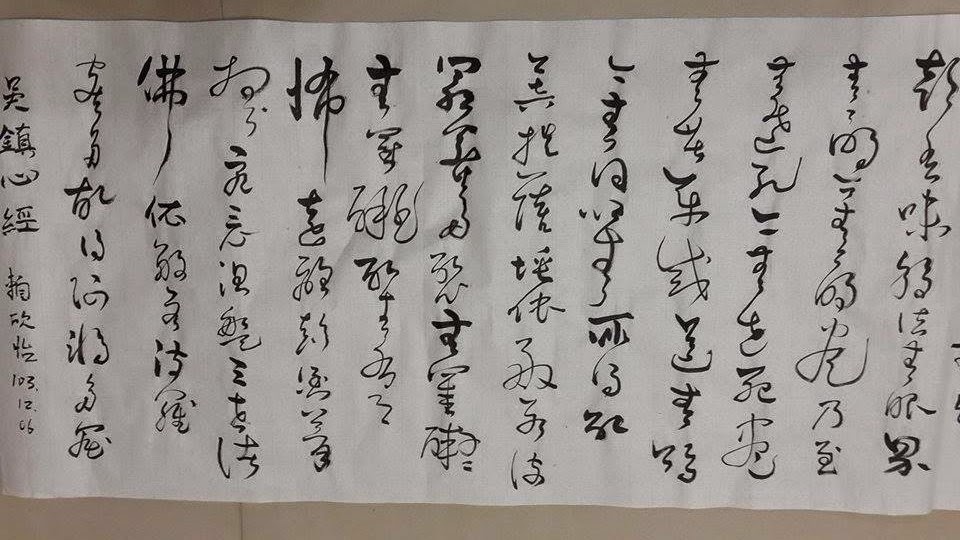 聲香味觸法無眼界
無無明亦無無明盡乃至
無老死亦無老死盡
無苦集滅道無智
亦無得以無所得故
菩提薩埵依般若波
羅蜜多故心無罣礙
無罣礙故無有恐
怖遠離顛倒夢
想究竟涅槃三世諸
佛依般若波羅
蜜多故得阿耨多羅
吳鎮心經 103.12.06